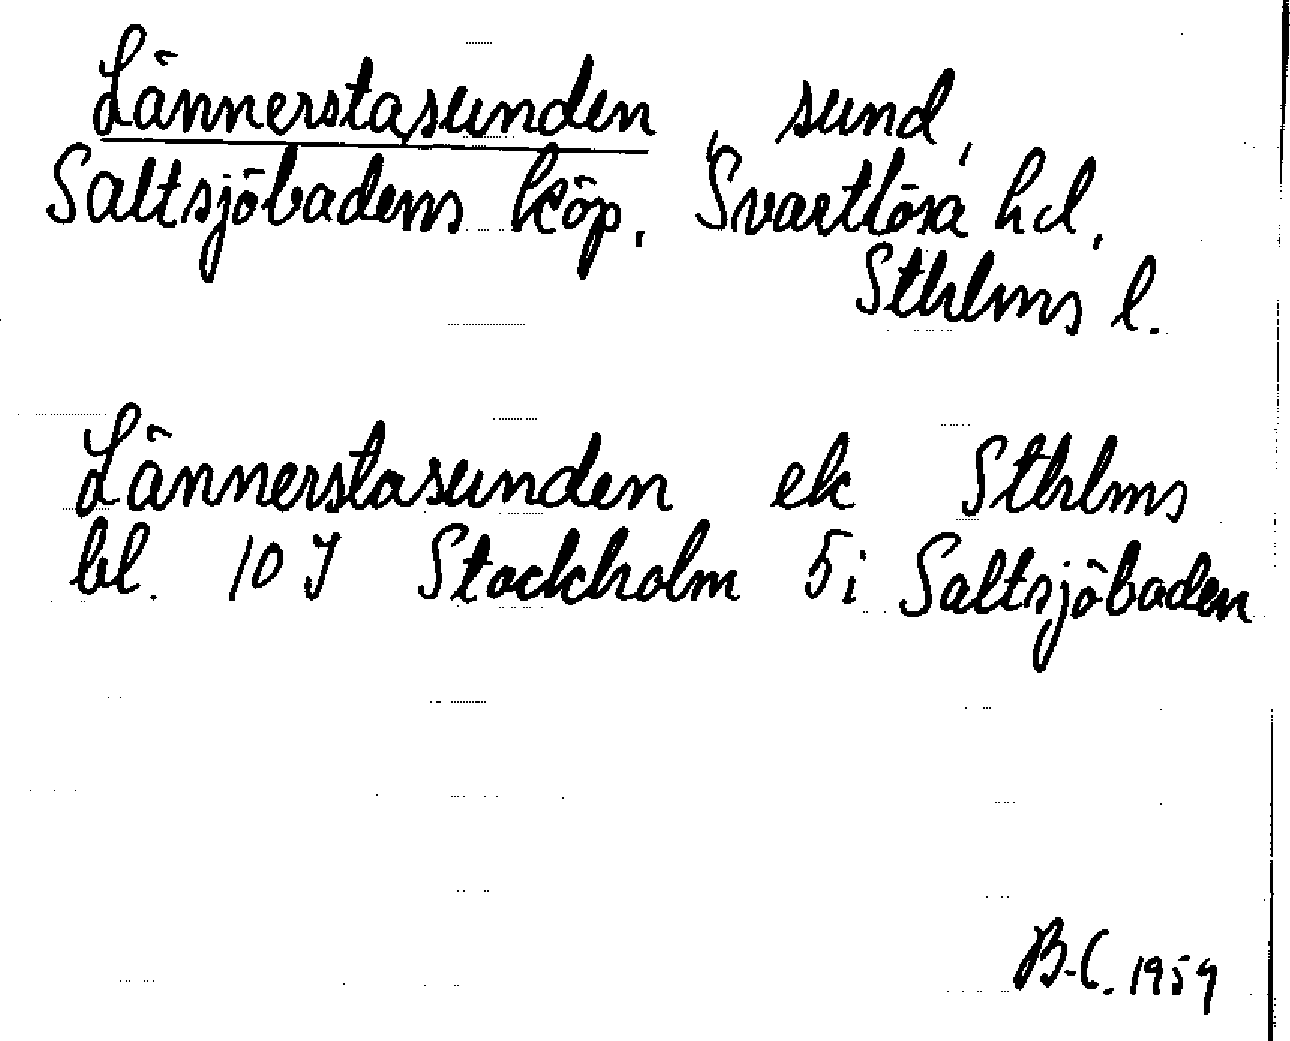 Lännerstasunden, sund,
Saltsjöbadens köp, Svartlösa hd,
Sthlms l.
Lännerstasunden ek Sthlms
bl. 10 J Stockholm 5 i Saltsjöbaden
B-C. 1959